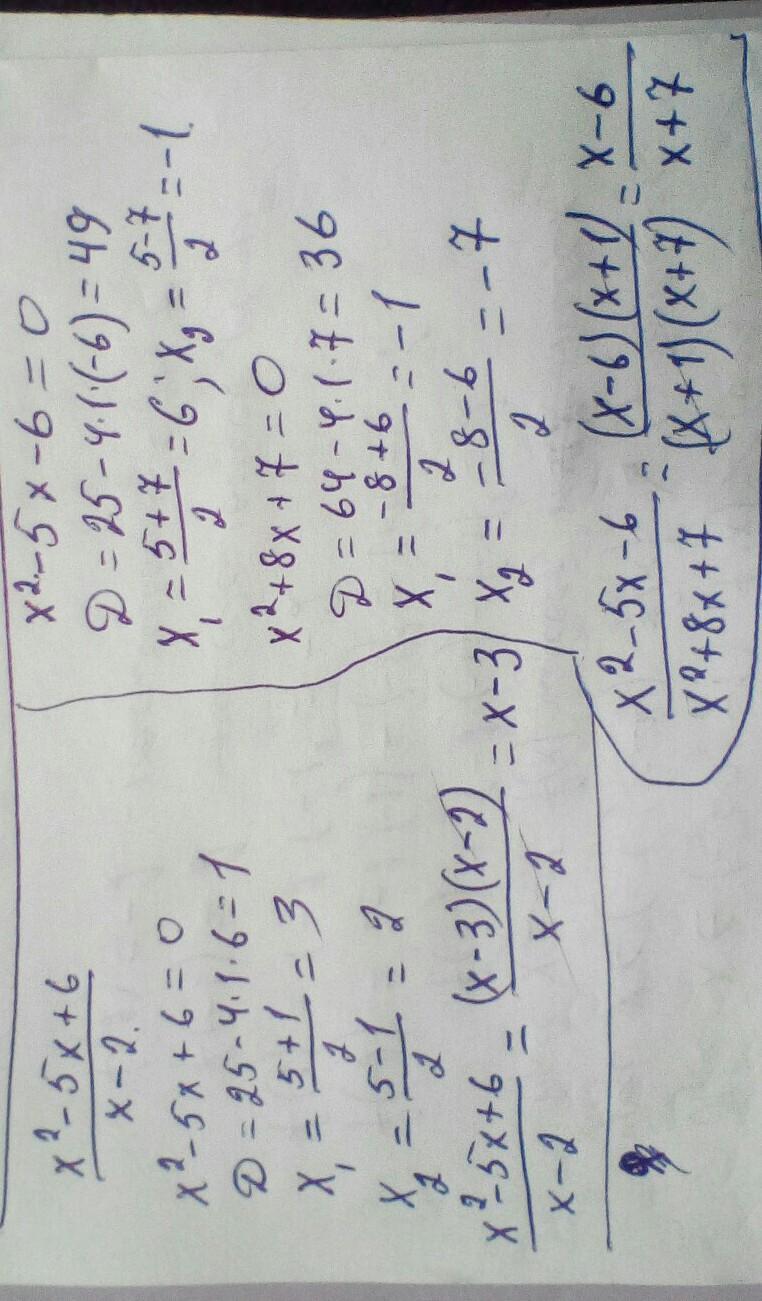 x²-5x+6
x-2.
x²-5x+6=0
D=25-4·1·6=1
x₁=5+1/2=3
x₂=5-1/2=2
x²-5x+6/x-2=(x-3)(x-2)/x-2=x-3
x²-5x-6=0
D=25-4·1·(-6)=49
x₁=5+7/2=6; x₂=5-7/2=-1.
x²+8x+7=0
D=64-4·1·7=36
x₁=-8+6/2=-1
x₂=-8-6/2=-7
x²-5x-6/x²+8x+7=(x-6)(x+1)/(x+1)(x+7)=x-6/x+7